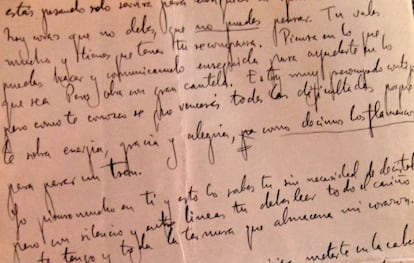 estás pasando solo servirá para
hay cosas que no debes, que no puedes pensar. Tu vales
mucho y tienes que tener tu recompensa. Piensa en lo que
puedas hacer y comunícamelo enseguida para ayudarte en lo
que sea. Pero obra con gran cautela. Estoy muy preocupado contigo
pero como te conozco se que vencerás todas las dificultades porque
te sobra energía, gracia y alegría, como decimos los flamencos
para parar un tren.
Yo pienso mucho en ti y esto lo sabes tu sin necesidad de decírtelo
pero con silencio y entre líneas tu debes leer todo el cariño
que te tengo y toda la ternura que almacena mi corazón.
meterte en la cabeza